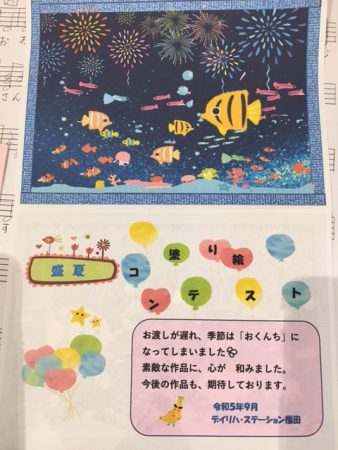 盛夏
塗り絵
コンテスト
お渡しが遅れ、季節は「おくんち」に
なってしまいました
素敵な作品に、心が 和みました。
今後の作品も、期待しております。
令和5年9月
デイリハ・ステーション福田
お
さん